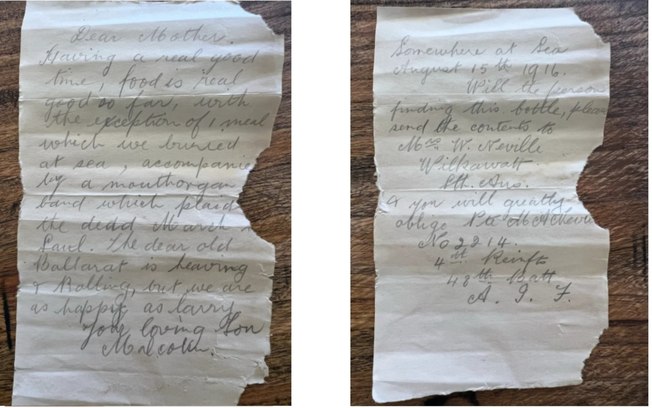 Dear Mother.
Having a real good
time, food is real
good so far, with
the exception of 1 meal
which we buried
at sea, accompanie
by a mouthorgan
band which plaid
the dedd March
Saul. The dear old
Ballarat is heaving
& Rolling, but we are
as happy as larry
Your loving Son
Malcolm.
Somewhere at Sea
August 15th 1916.
Will the person
finding this bottle, please
send the contents to
Mrs W. Neville
Wilkawatt
Sth. Aus.
& you will greatly
oblige Pte M A Nevi
No 2214.
4th Reinft
48th Batt
A. I. F.